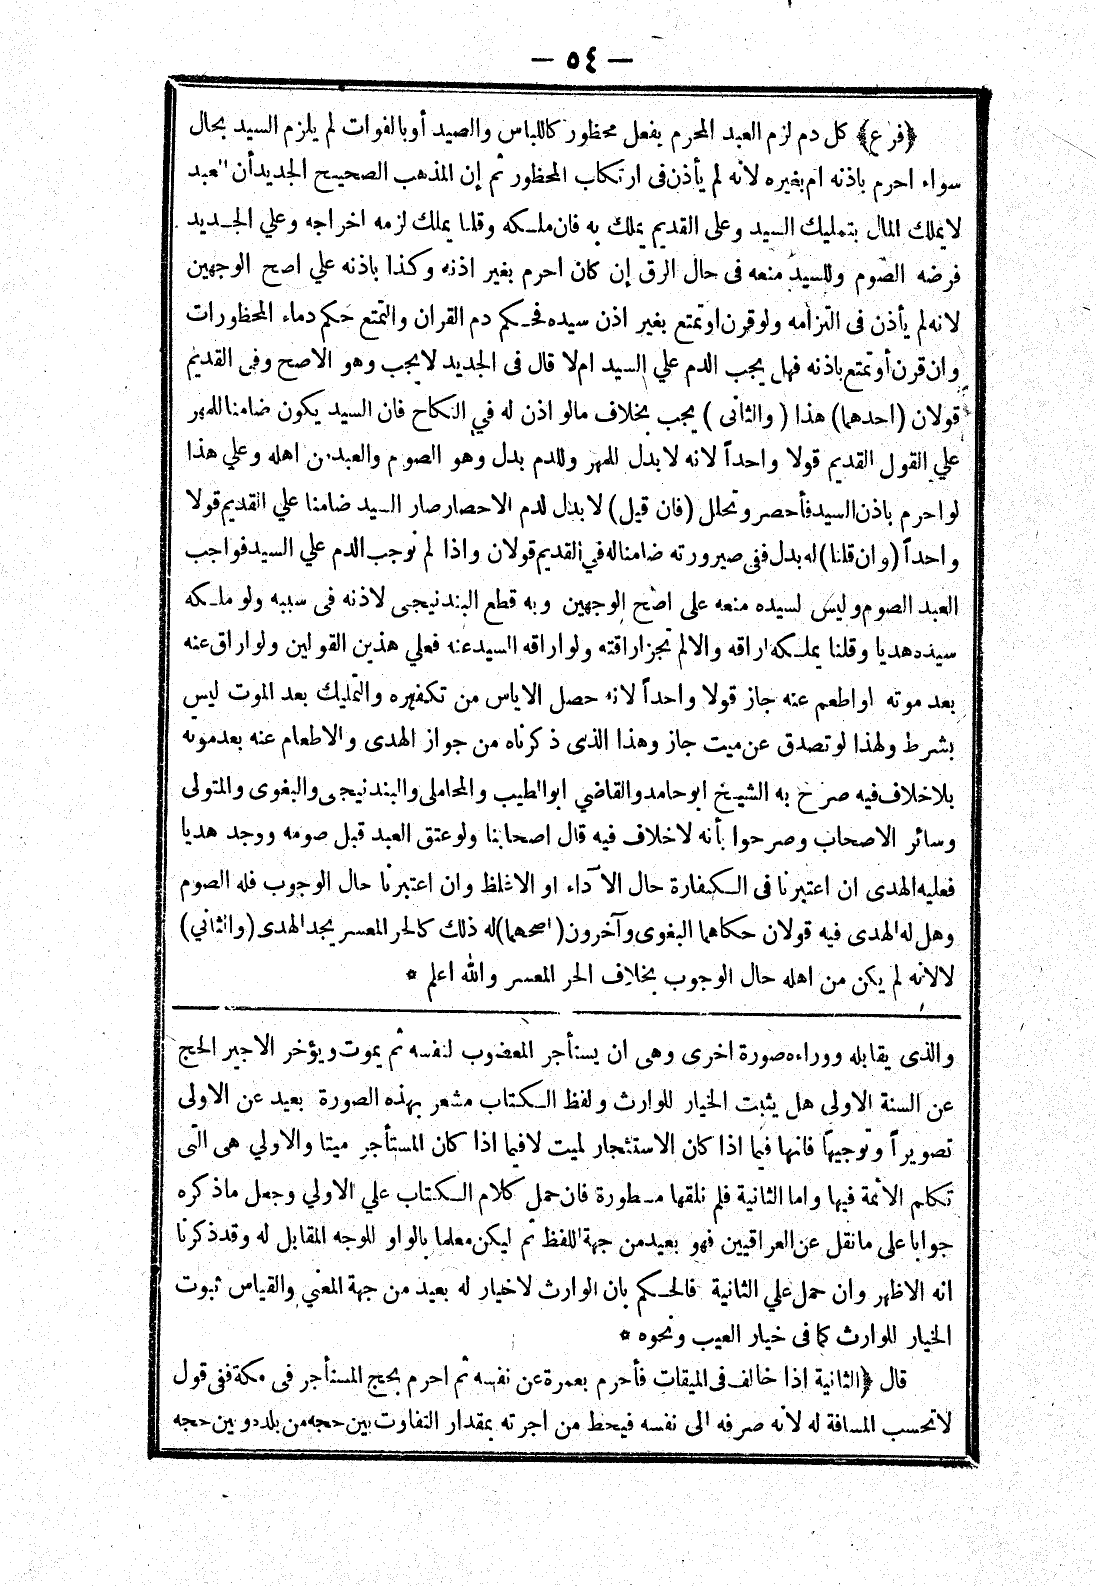 — ٥٤ —
﴿فرع﴾ كل دم لزم العبد المحرم بفعل محظور كاللباس والصيد أو بالفوات لم يلزم السيد بحال
سواء احرم باذنه ام بغيره لانه لم يأذن فى ارتكاب المحظور ثم إن المذهب الصحيح الجديد أن العبد
لا يملك المال بتمليك السيد وعلى القديم يملك به فان ملكه وقلنا يملك لزمه اخراجه وعلي الجديد
فرضه الصوم وللسيد منعه فى حال الرق إن كان احرم بغير اذنه وكذا باذنه علي اصح الوجهين
لانه لم يأذن فى التزامه ولو قرن او تمتع بغير اذن سيده فحكم دم القران والتمتع حكم دماء المحظورات
وان قرن أو تمتع باذنه فهل يجب الدم علي السيد ام لا قال فى الجديد لا يجب وهو الاصح وفى القديم
قولان (احدهما) هذا (والثانى) يجب بخلاف ما لو اذن له في النكاح فان السيد يكون ضامنا للمهر
علي القول القديم قولا واحداً لانه لا بدل للمهر وللدم بدل وهو الصوم والعبد من اهله وعلي هذا
لو احرم باذن السيد فأحصر وتحلل (فان قيل) لا بدل لدم الاحصار صار السيد ضامنا علي القديم قولا
واحداً (وان قلنا) له بدل ففى صيرورته ضامنا له في القديم قولان واذا لم نوجب الدم علي السيد فواجب
العبد الصوم وليس لسيده منعه على اصح الوجهين وبه قطع البندنيجى لاذنه فى سببه ولو ملكه
سيده هديا وقلنا يملكه اراقه والا لم تجز اراقته ولو اراقه السيد عنه فعلي هذين القولين ولو اراق عنه
بعد موته او اطعم عنه جاز قولا واحداً لانه حصل الاياس من تكفيره والتمليك بعد الموت ليس
بشرط ولهذا لو تصدق عن ميت جاز وهذا الذى ذكرناه من جواز الهدى والاطعام عنه بعد موته
بلا خلاف فيه صرح به الشيخ ابو حامد والقاضي ابو الطيب والمحاملى والبندنيجى والبغوى والمتولى
وسائر الاصحاب وصرحوا بأنه لا خلاف فيه قال اصحابنا ولو عتق العبد قبل صومه ووجد هديا
فعليه الهدى ان اعتبرنا فى الكفارة حال الآداء او الاغلظ وان اعتبرنا حال الوجوب فله الصوم
وهل له الهدى فيه قولان حكاهما البغوى وآخرون (اصحهما) له ذلك كالحر المعسر يجد الهدى (والثاني)
لا لانه لم يكن من اهله حال الوجوب بخلاف الحر المعسر والله اعلم *
والذى يقابله ووراءه صورة اخرى وهى ان يستأجر المعضوب لنفسه ثم يموت ويؤخر الاجير الحج
عن السنة الاولي هل يثبت الخيار للوارث ولفظ الكتاب مشعر بهذه الصورة بعيد عن الاولى
تصويراً وتوجيها فانها فيما اذا كان الاستئجار لميت لا فيما اذا كان المستأجر ميتا والاولي هى التى
تكلم الأئمة فيها واما الثانية فلم نلقها مسطورة فان حمل كلام الكتاب علي الاولي وجعل ما ذكره
جوابا على ما نقل عن العراقيين فهو بعيد من جهة اللفظ ثم ليكن معلما بالواو للوجه المقابل له وقد ذكرنا
انه الاظهر وان حمل علي الثانية فالحكم بان الوارث لا خيار له بعيد من جهة المعني والقياس ثبوت
الخيار للوارث كما فى خيار العيب ونحوه *
قال ﴿الثانية اذا خالف فى الميقات فأحرم بعمرة عن نفسه ثم احرم بحج المستأجر فى مكة ففى قول
لا تحسب المسافة له لأنه صرفه الى نفسه فيحط من اجرته بمقدار التفاوت بين حجه من بلده وبين حجه